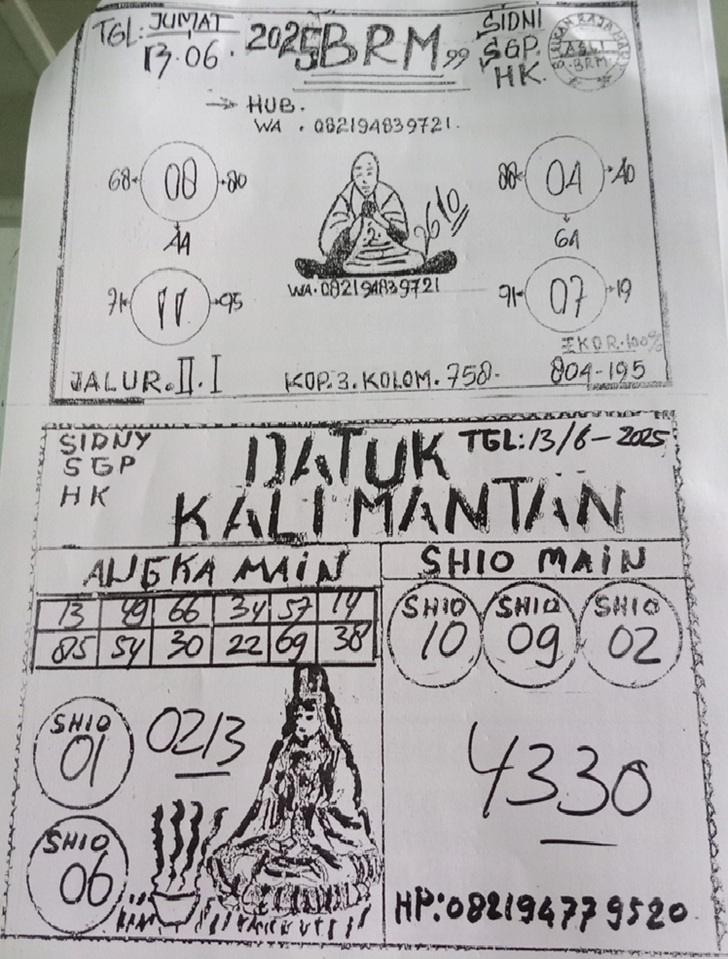 TGL: JUMAT
13.06.2025
BRM 99
SIDNI
SGP.
HK.
ASLI
BRM
→ HUB.
WA . 082194839721.
68 08 80
AA
88 04 A0
6A
2
2610
WA.082194839721
71 11 95
91 07 19
EKOR.100%
JALUR.II.I
KOP.3.KOLOM.758.
804-195
SIDNY
SGP
HK
DATUK
KALIMANTAN
TGL:13/6-2025
ANGKA MAIN
13 49 66 34 57 14
85 54 30 22 69 38
SHIO MAIN
SHIO
10
SHIO
09
SHIO
02
SHIO
01
0213
SHIO
06
4330
HP:082194779520